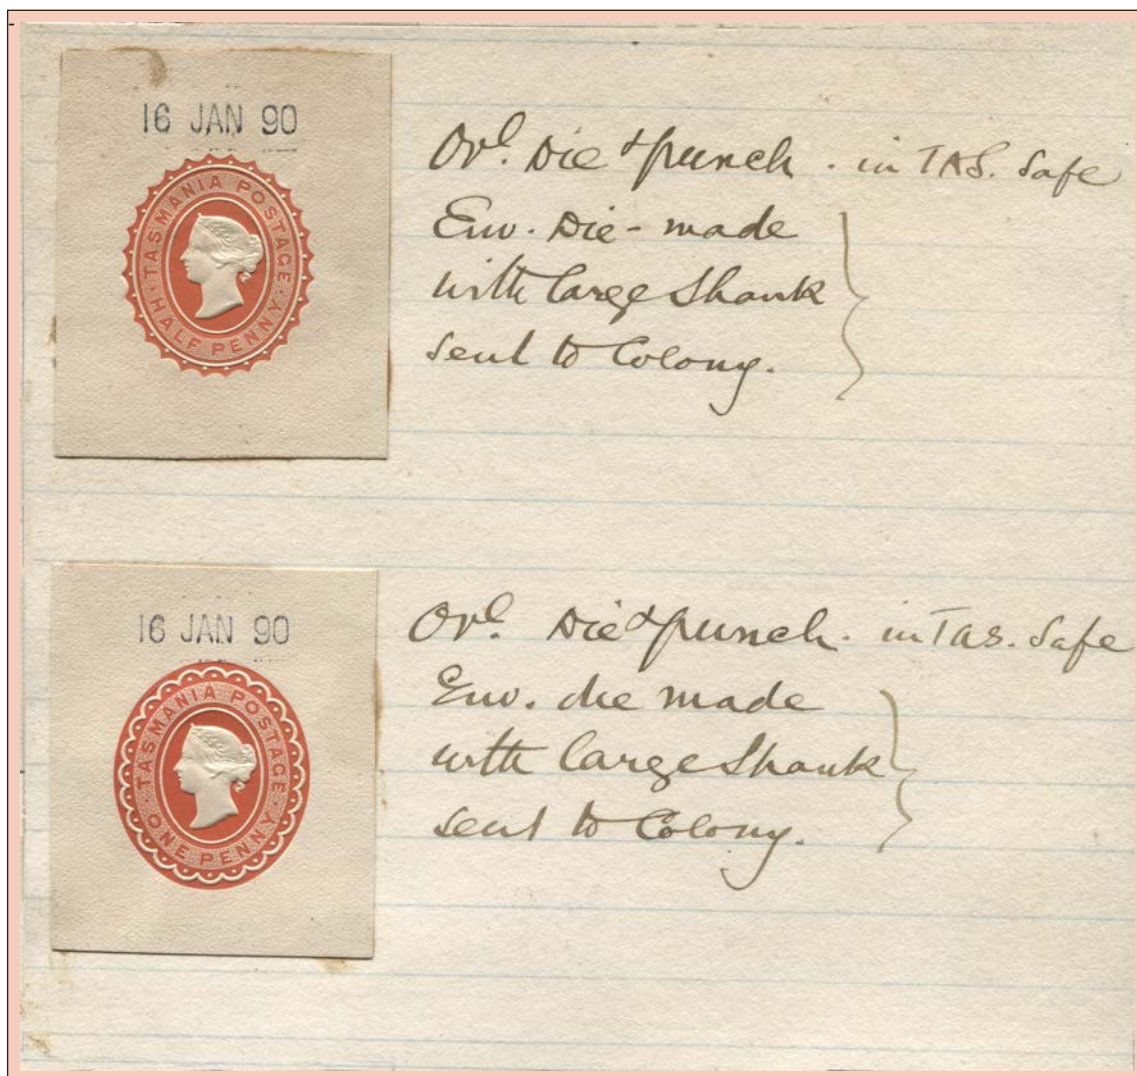 16 JAN 90
TASMANIA POSTAGE
HALF PENNY
Orl. Die & punch. in TAS. Safe
Env. Die - made
with large Shank
sent to Colony.
16 JAN 90
TASMANIA POSTAGE
ONE PENNY
Orl. Die & punch. in Tas. Safe
Env. die made
with large Shank
sent to Colony.